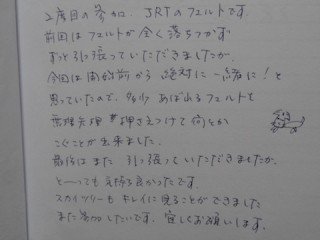 2度目の参加、JRTのフェルトです。
前回はフェルトが全く落ちつかず
ずっと引っ張っていただきましたが、
今回は開始前から絶対に一緒に!と
思っていたので、多少あばれるフェルトを
無理矢理押さえつけて何とか
こぐことが出来ました。
最後はまた引っ張っていただきましたが、
と〜っても気持ち良かったです。
スカイツリーもキレイに見ることができました
また参加したいです。宜しくお願いします。